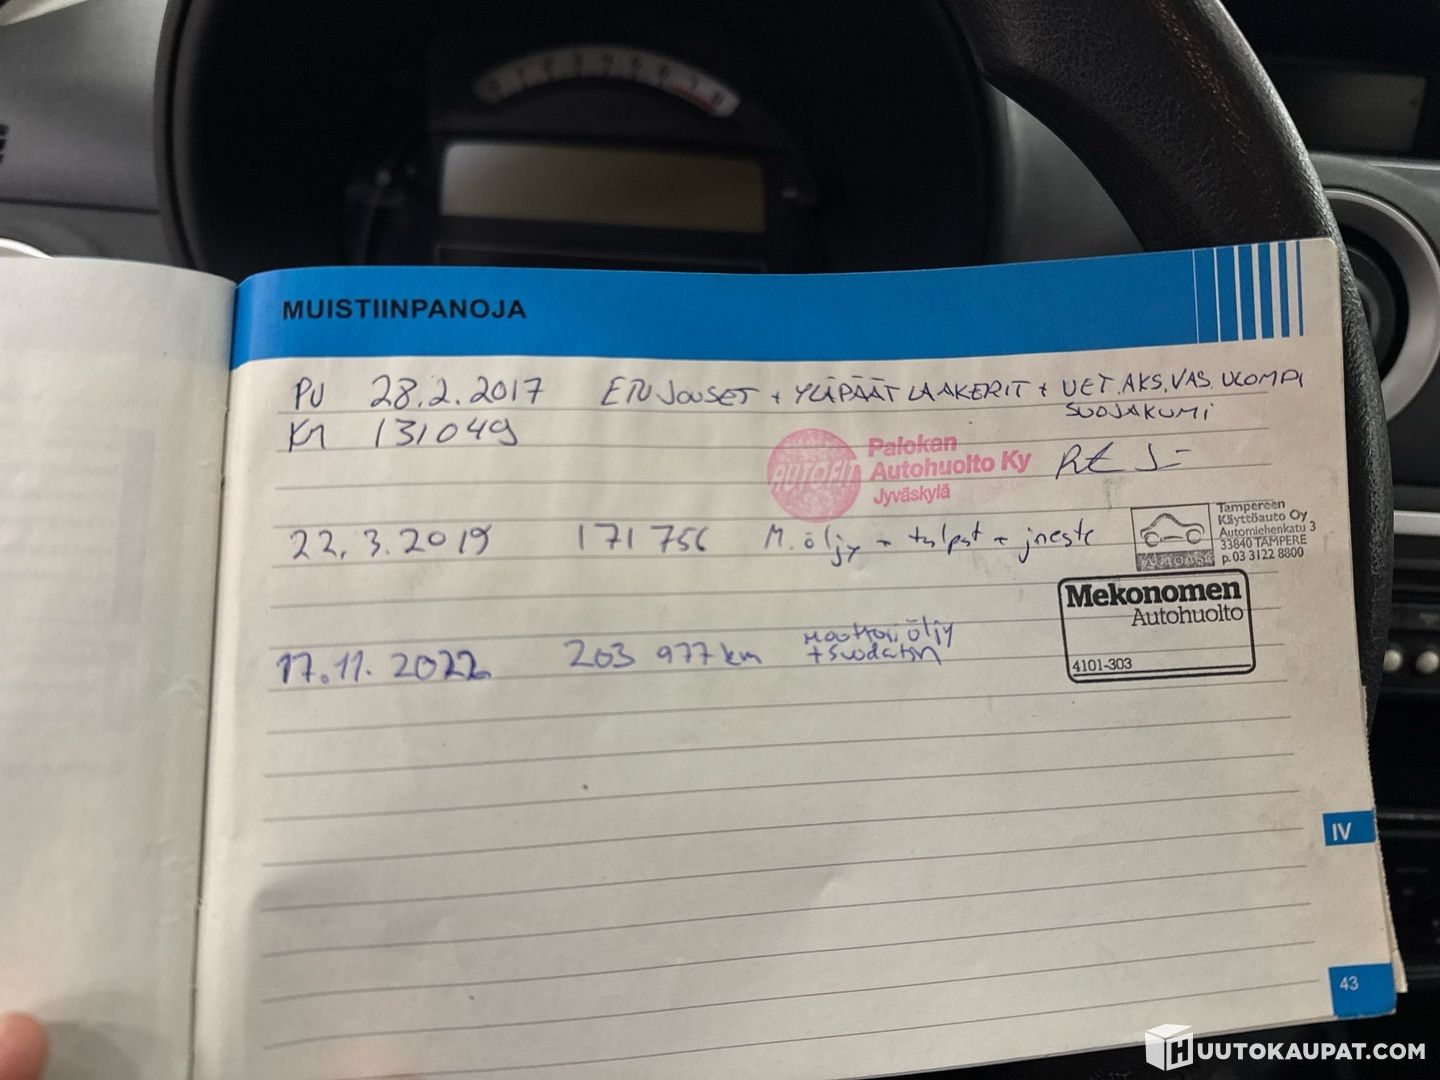 MUISTIINPANOJA
PV 28.2.2017 ETUJOUSET + YLÄPÄÄT LAAKERIT + VET.AKS.VAS. ULOMPI
SUOJAKUMI
KM 131049
AUTOFIT
Palokan
Autohuolto Ky
Jyväskylä
22.3.2019 171 756 M.öljy + tulpat + jneste
Tampereen
Käyttöauto Oy
Automiehenkatu 3
33840 TAMPERE
p. 03 3122 8800
AUTOASI
Mekonomen
Autohuolto
4101-303
17.11.2022 203 977 km Moottoriöljy
+ suodatin
IV
43
HUUTOKAUPAT.COM